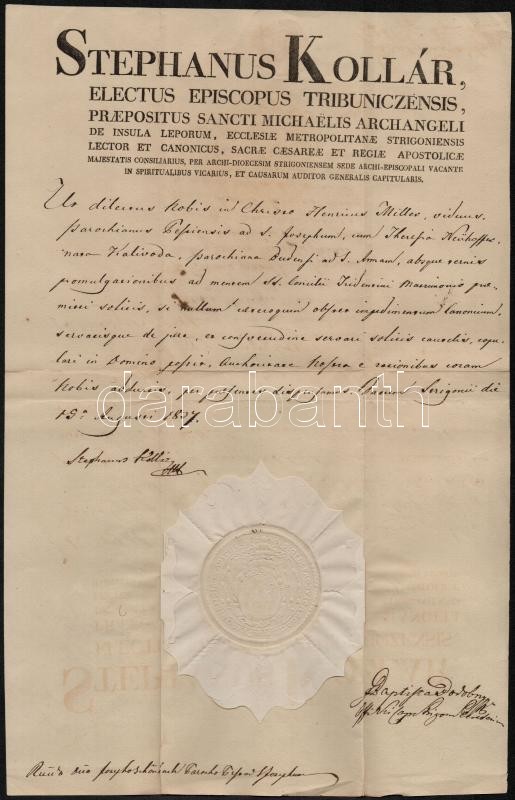 STEPHANUS KOLLÁR,
ELECTUS EPISCOPUS TRIBUNICZENSIS,
PRÆPOSITUS SANCTI MICHAËLIS ARCHANGELI
DE INSULA LEPORUM, ECCLESIÆ METROPOLITANÆ STRIGONIENSIS
LECTOR ET CANONICUS, SACRÆ CÆSAREÆ ET REGIÆ APOSTOLICÆ
MAJESTATIS CONSILIARIUS, PER ARCHI-DIOECESIM STRIGONIENSEM SEDE ARCHI-EPISCOPALI VACANTE
IN SPIRITUALIBUS VICARIUS, ET CAUSARUM AUDITOR GENERALIS CAPITULARIS.
Ut dilectus Nobis in Christo Henricus Milles, viduus,
parochianus Pestiensis ad S. Josephum, cum Theresia
nata Kalivoda, parochiana Budensi ad S. Annam, absque ternis
promulgationibus ad mentem SS. Concilii Tridentini Matrimonio
mitti solitis, si nullum caeteroquin obstet impedimentum canonicum,
servatisque de jure, et consvetudine servari solitis cautelis, copu-
lari in Domino possit, Authoritate Nostra e rationibus coram
Nobis adductis, per praesentes dispensamus. Datum Strigonii die
Augusti 1827.
darabanth
Stephanus Kollár
Baptista